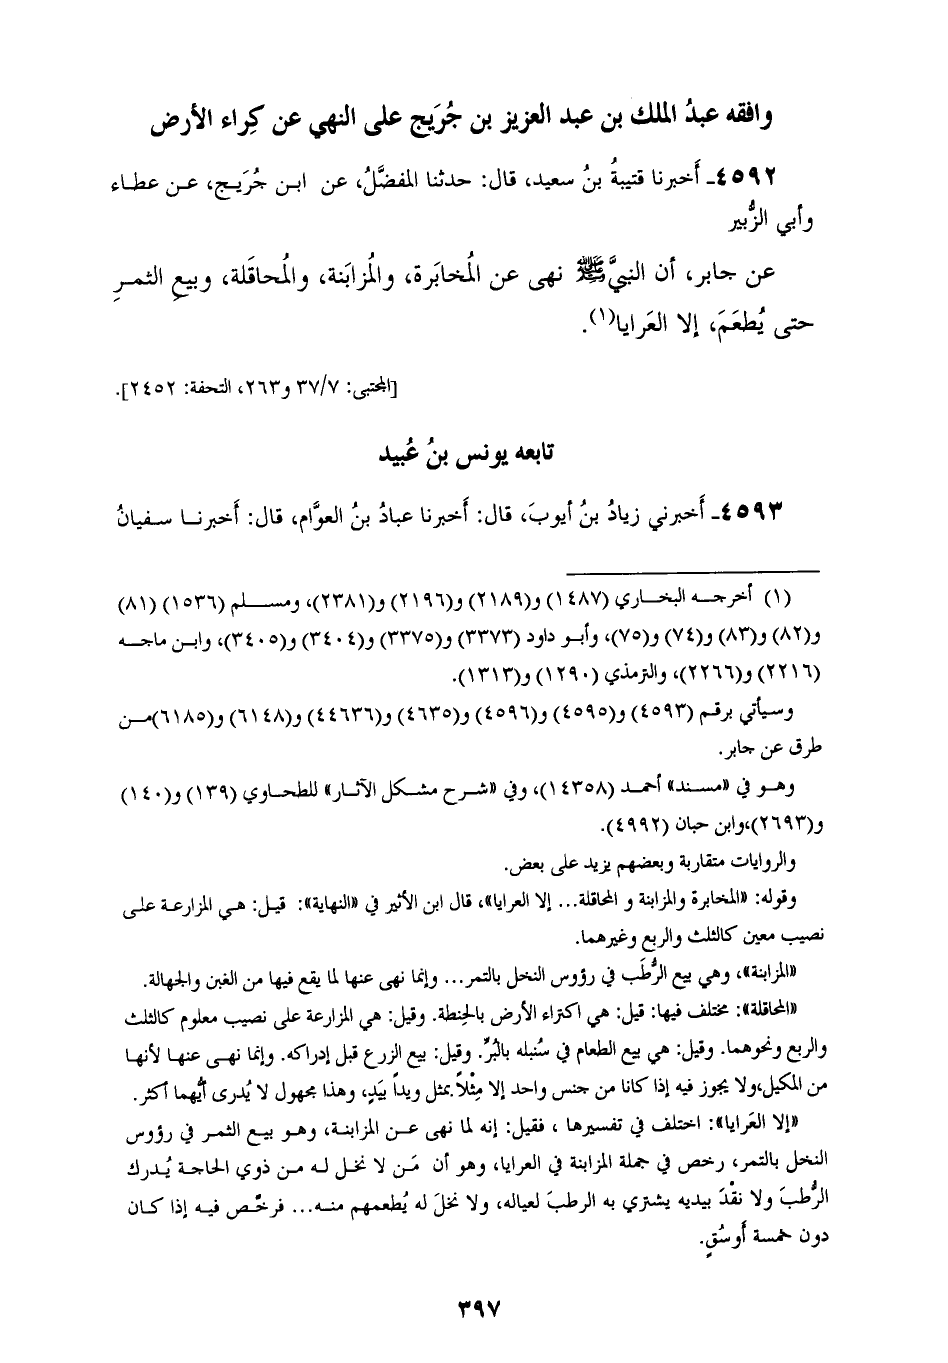 وافقه عبدُ الملك بن عبد العزيز بن جُرَيج على النهي عن كِراء الأرض
٤٥٩٢ـ أَخبرنا قتيبةُ بنُ سعيد، قال: حدثنا المفضَّلُ، عن ابن جُرَيج، عن عطاء
وأَبي الزُّبير
عن جابر، أن النبيَّ ﷺ نهى عن المُخابَرة، والمُزابَنة، والمُحاقَلة، وبيعِ الثمرِ
حتى يُطعَمَ، إلا العَرايا(١).
[المجتبى: ٣٧/٧ و٢٦٣، التحفة: ٢٤٥٢].
تابعه يونس بنُ عُبيد
٤٥٩٣ـ أَخبرني زيادُ بنُ أيوبَ، قال: أَخبرنا عبادُ بنُ العوَّام، قال: أَخبرنا سفيانُ
(١) أخرجه البخاري (١٤٨٧) و(٢١٨٩) و(٢١٩٦) و(٢٣٨١)، ومسلم (١٥٣٦) (٨١)
و(٨٢) و(٨٣) و(٧٤) و(٧٥)، وأبو داود (٣٣٧٣) و(٣٣٧٥) و(٣٤٠٤) و(٣٤٠٥)، وابن ماجه
(٢٢١٦) و(٢٢٦٦)، والترمذي (١٢٩٠) و(١٣١٣).
وسيأتي برقم (٤٥٩٣) و(٤٥٩٥) و(٤٥٩٦) و(٤٦٣٥) و(٤٤٦٣٦) و(٦١٤٨) و(٦١٨٥)من
طرق عن جابر.
وهو في «مسند» أحمد (١٤٣٥٨)، وفي «شرح مشكل الآثار» للطحاوي (١٣٩) و(١٤٠)
و(٢٦٩٣)،وابن حبان (٤٩٩٢).
والروايات متقاربة وبعضهم يزيد على بعض.
وقوله: «المخابرة والمزابنة و المحاقلة... إلا العرايا»، قال ابن الأثير في «النهاية»: قيل: هي المزارعة على
نصيب معين كالثلث والربع وغيرهما.
«المزابنة»، وهي بيع الرُّطَب في رؤوس النخل بالتمر... وإنما نهى عنها لما يقع فيها من الغبن والجهالة.
«المحاقلة»: مختلف فيها: قيل: هي اكتراء الأرض بالحِنطة. وقيل: هي المزارعة على نصيب معلوم كالثلث
والربع ونحوهما. وقيل: هي بيع الطعام في سُنبله بالبُرِّ. وقيل: بيع الزرع قبل إدراكه. وإنما نهى عنها لأنها
من المكيل،ولا يجوز فيه إذا كانا من جنس واحد إلا مِثْلاً بمثل ويداً بيَدٍ، وهذا مجهول لا يُدرى أيُّهما أكثر.
«إلا العَرايا»: اختلف في تفسيرها ، فقيل: إنه لما نهى عن المزابنة، وهو بيع الثمر في رؤوس
النخل بالتمر، رخص في جملة المزابنة في العرايا، وهو أن مَن لا نخل له من ذوي الحاجة يُدرك
الرُّطبَ ولا نقْدَ بيديه يشتري به الرطبَ لعياله، ولا نخلَ له يُطعمهم منه... فرخَّص فيه إذا كان
دون خمسة أَوسُقٍ.
٣٩٧